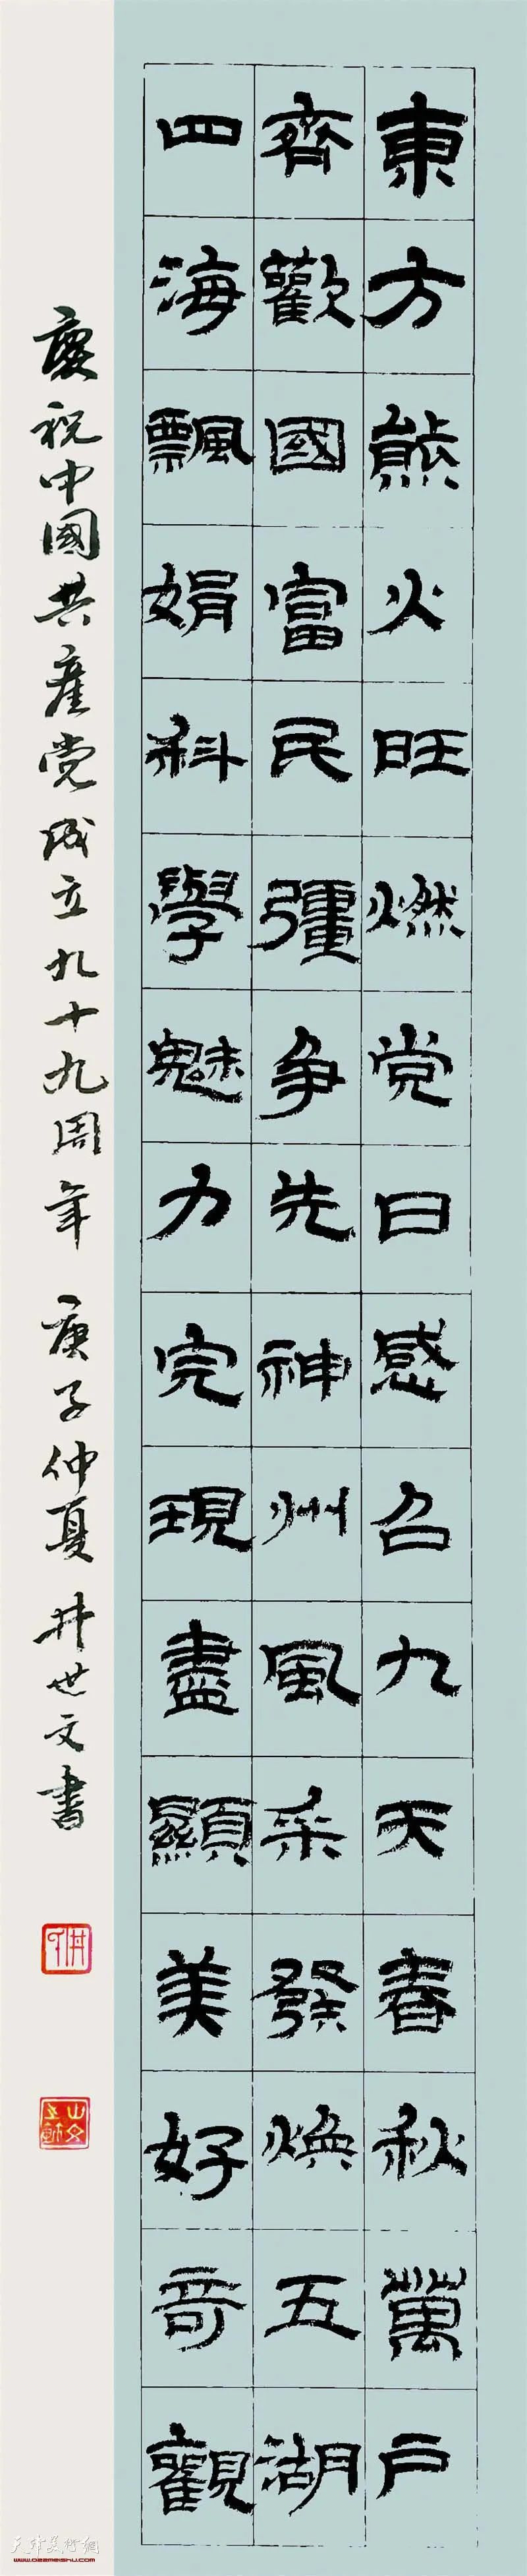 東方熊火旺燃党日感召九天春秋萬户
齊歡國富民彊争先神州風采發焕五湖
四海飄娟科學魅力完現盡顯美好奇觀
慶祝中國共産党成立九十九周年 庚子仲夏 井世文書
天津美術網